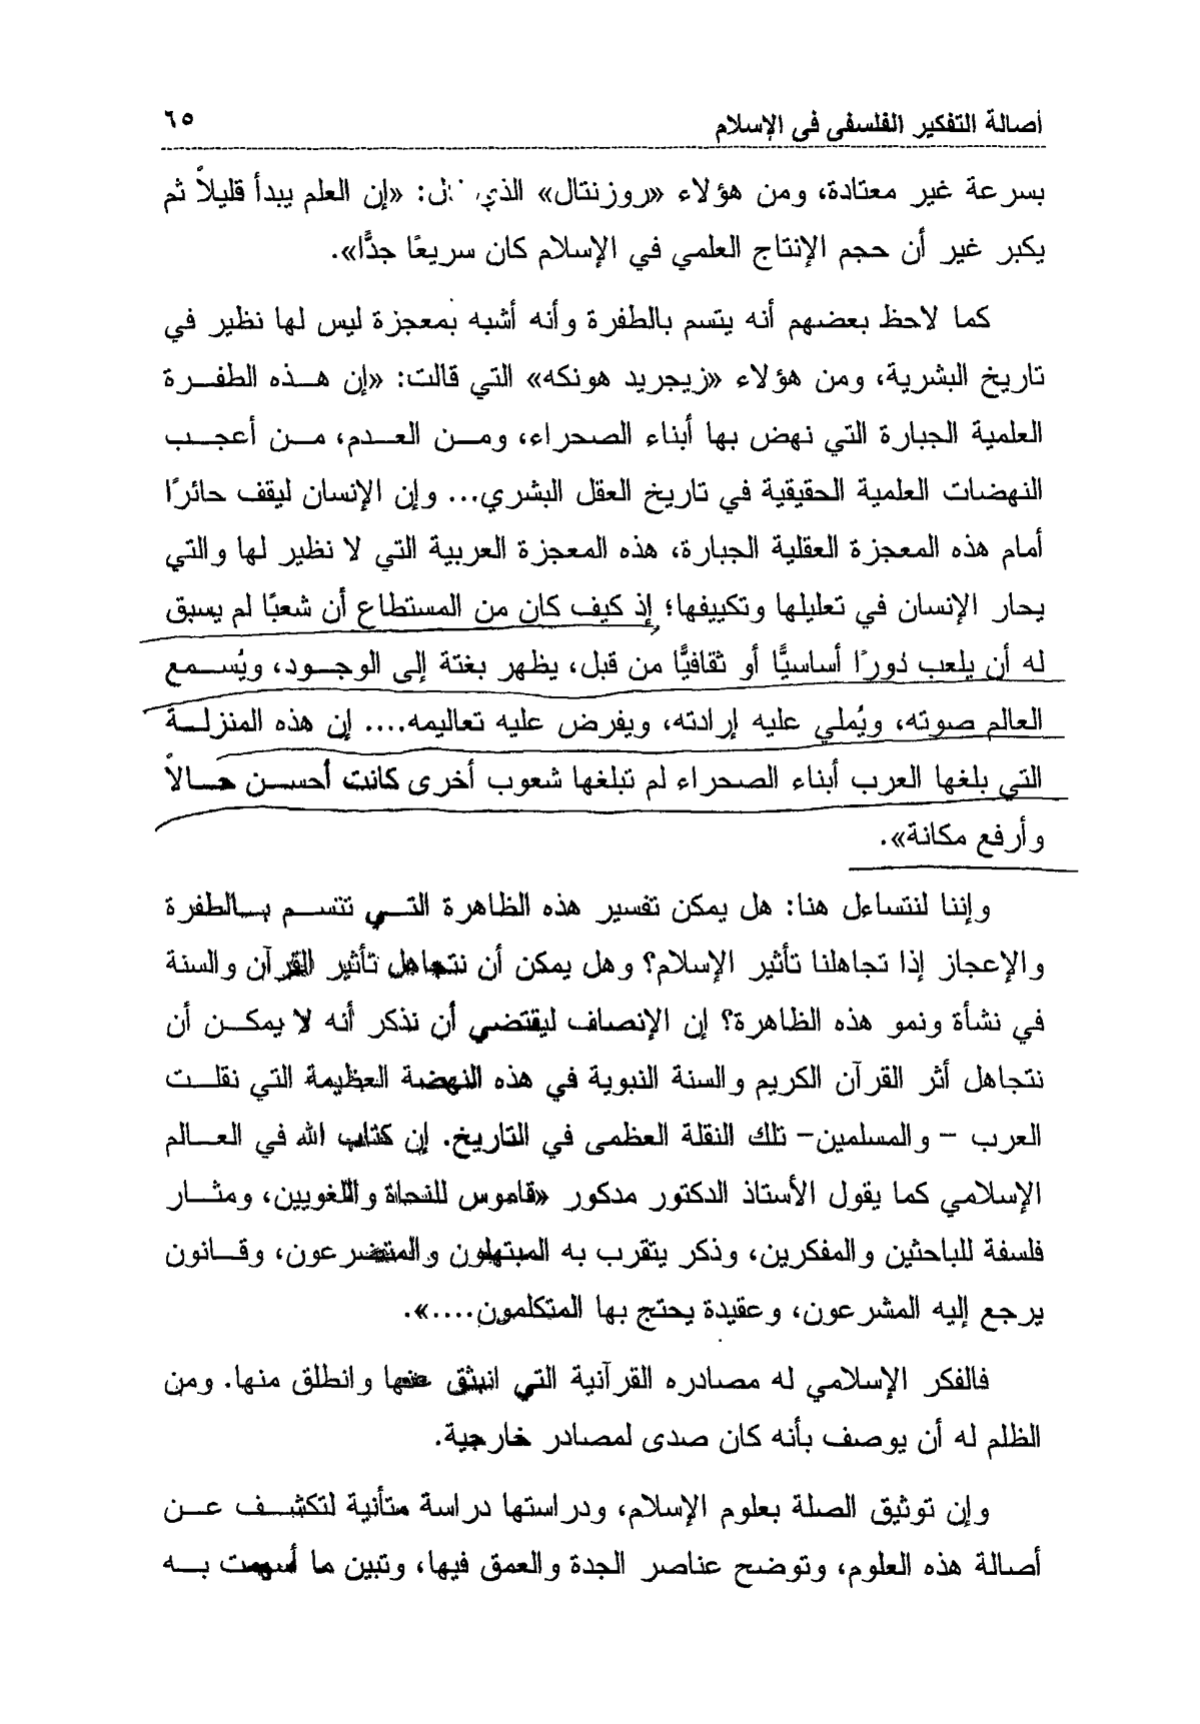 أصالة التفكير الفلسفى فى الإسلام ٦٥
بسرعة غير معتادة، ومن هؤلاء «روزنتال» الذي : «إن العلم يبدأ قليلاً ثم
يكبر غير أن حجم الإنتاج العلمي في الإسلام كان سريعًا جدًّا».
كما لاحظ بعضهم أنه يتسم بالطفرة وأنه أشبه بمعجزة ليس لها نظير في
تاريخ البشرية، ومن هؤلاء «زيجريد هونكه» التي قالت: «إن هذه الطفرة
العلمية الجبارة التي نهض بها أبناء الصحراء، ومن العدم، من أعجب
النهضات العلمية الحقيقية في تاريخ العقل البشري... وإن الإنسان ليقف حائرًا
أمام هذه المعجزة العقلية الجبارة، هذه المعجزة العربية التي لا نظير لها والتي
يحار الإنسان في تعليلها وتكييفها؛ إذ كيف كان من المستطاع أن شعبًا لم يسبق
له أن يلعب دورًا أساسيًّا أو ثقافيًّا من قبل، يظهر بغتة إلى الوجود، ويُسمع
العالم صوته، ويُملي عليه إرادته، ويفرض عليه تعاليمه.... إن هذه المنزلة
التي بلغها العرب أبناء الصحراء لم تبلغها شعوب أخرى كانت أحسن حالاً
وأرفع مكانة».
وإننا لنتساءل هنا: هل يمكن تفسير هذه الظاهرة التي تتسم بالطفرة
والإعجاز إذا تجاهلنا تأثير الإسلام؟ وهل يمكن أن نتجاهل تأثير القرآن والسنة
في نشأة ونمو هذه الظاهرة؟ إن الإنصاف ليقتضي أن نذكر أنه لا يمكن أن
نتجاهل أثر القرآن الكريم والسنة النبوية في هذه النهضة العظيمة التي نقلت
العرب – والمسلمين– تلك النقلة العظمى في التاريخ. إن كتاب الله في العالم
الإسلامي كما يقول الأستاذ الدكتور مدكور «قاموس للنحاة واللغويين، ومثار
فلسفة للباحثين والمفكرين، وذكر يتقرب به المبتهلون والمتضرعون، وقانون
يرجع إليه المشرعون، وعقيدة يحتج بها المتكلمون....».
فالفكر الإسلامي له مصادره القرآنية التي انبثق عنها وانطلق منها. ومن
الظلم له أن يوصف بأنه كان صدى لمصادر خارجية.
وإن توثيق الصلة بعلوم الإسلام، ودراستها دراسة متأنية لتكشف عن
أصالة هذه العلوم، وتوضح عناصر الجدة والعمق فيها، وتبين ما أسهمت به